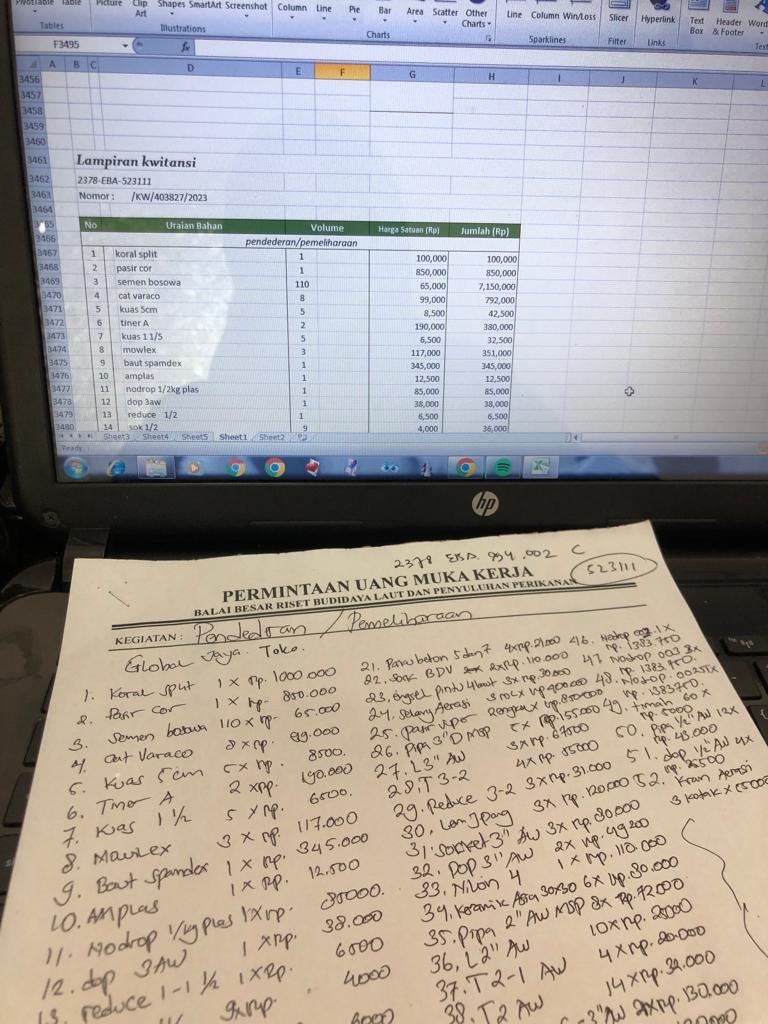 PivotTable Table Picture Clip Art Shapes SmartArt Screenshot Column Line Pie Bar Area Scatter Other Charts Line Column Win/Loss Slicer Hyperlink Text Box Header & Footer
Tables Illustrations Charts Sparklines Filter Links
F3495 fx
A B C D E F G H I J K L
3456
3457
3458
3459
3460
3461 Lampiran kwitansi
3462 2378-EBA-523111
3463 Nomor : /KW/403827/2023
3464
3465 No Uraian Bahan Volume Harga Satuan (Rp) Jumlah (Rp)
3466 pendederan/pemeliharaan
3467 1 koral split 1 100,000 100,000
3468 2 pasir cor 1 850,000 850,000
3469 3 semen bosowa 110 65,000 7,150,000
3470 4 cat varaco 8 99,000 792,000
3471 5 kuas 5cm 5 8,500 42,500
3472 6 tiner A 2 190,000 380,000
3473 7 kuas 1 1/5 5 6,500 32,500
3474 8 mowlex 3 117,000 351,000
3475 9 baut spamdex 1 345,000 345,000
3476 10 amplas 1 12,500 12,500
3477 11 nodrop 1/2kg plas 1 85,000 85,000
3478 12 dop 3aw 1 38,000 38,000
3479 13 reduce 1/2 1 6,500 6,500
3480 14 sok 1/2 9 4,000 36,000
Sheet3 Sheet4 Sheet5 Sheet1 Sheet2
Ready
hp
2378 EBA 994.002 C
523111
PERMINTAAN UANG MUKA KERJA
BALAI BESAR RISET BUDIDAYA LAUT DAN PENYULUHAN PERIKANAN
KEGIATAN : Pendedran / Pemeliharaan
Global Jaya. Toko.
1. Koral split 1 x Rp. 1000.000
2. Pasir cor 1 x Rp- 850.000
3. Semen bosowa 110 x Rp- 65.000
4. cat Varaco 8 x Rp. 99.000
5. Kuas 5 cm 5 x Rp. 8500.
6. Tiner A 2 x Rp. 190.000
7. Kuas 1 1/2 5 x Rp. 6500.
8. Mawlex 3 x Rp. 117.000
9. Baut spandex 1 x Rp. 345.000
10. AMPlas 1 x Rp. 12.500
11. Nodrop 1/2kg plas 1 x Rp. 85000.
12. dop 3AW 1 x Rp. 38.000
13. reduce 1-1 1/2 1 x Rp. 6500
9 x Rp. 4000
21. Paku beton 5 dan 7 4 x Rp. 21.000
22. Sok BDV 2 x Rp. 110.000
23. engsel pintu 4 baut 3 x Rp. 30.000
24. selang Aerasi
25. pasir
26. Pipa 3" D MSP 5 x Rp. 155000
27. L 3" AW 3 x Rp. 67500
28. T 3-2 4 x Rp. 85000
29. Reduce 3-2 3 x Rp. 31.000
30. Lem 3 x Rp. 120000
31. Socket 3" AW 3 x Rp. 30.000
32. Dop 3" AW 2 x Rp. 49200
33. Nilon 4 1 x Rp. 110.000
34. Keramik Asia 30x30 6 x Rp. 80.000
35. Pipa 2" AW MSP 8 x Rp. 72000
36. L 2" AW 10 x Rp.
37. T 2-1 AW 4 x Rp. 20.000
38. T 2 AW 14 x Rp. 32.000
3" AW 2 x Rp. 130.000
46. Nodrop 002 1 x
Rp. 1383.750
47. Nodrop 003 3x
Rp. 1383.750.
48. Nodrop. 002
Rp. 1383750.
49. timah 60 x
Rp. 5000
50. Pipa 1/2" AW 12x
Rp. 43.000
51. dop 1/2" AW 4x
52. Kran Aerasi
3 Kotak x